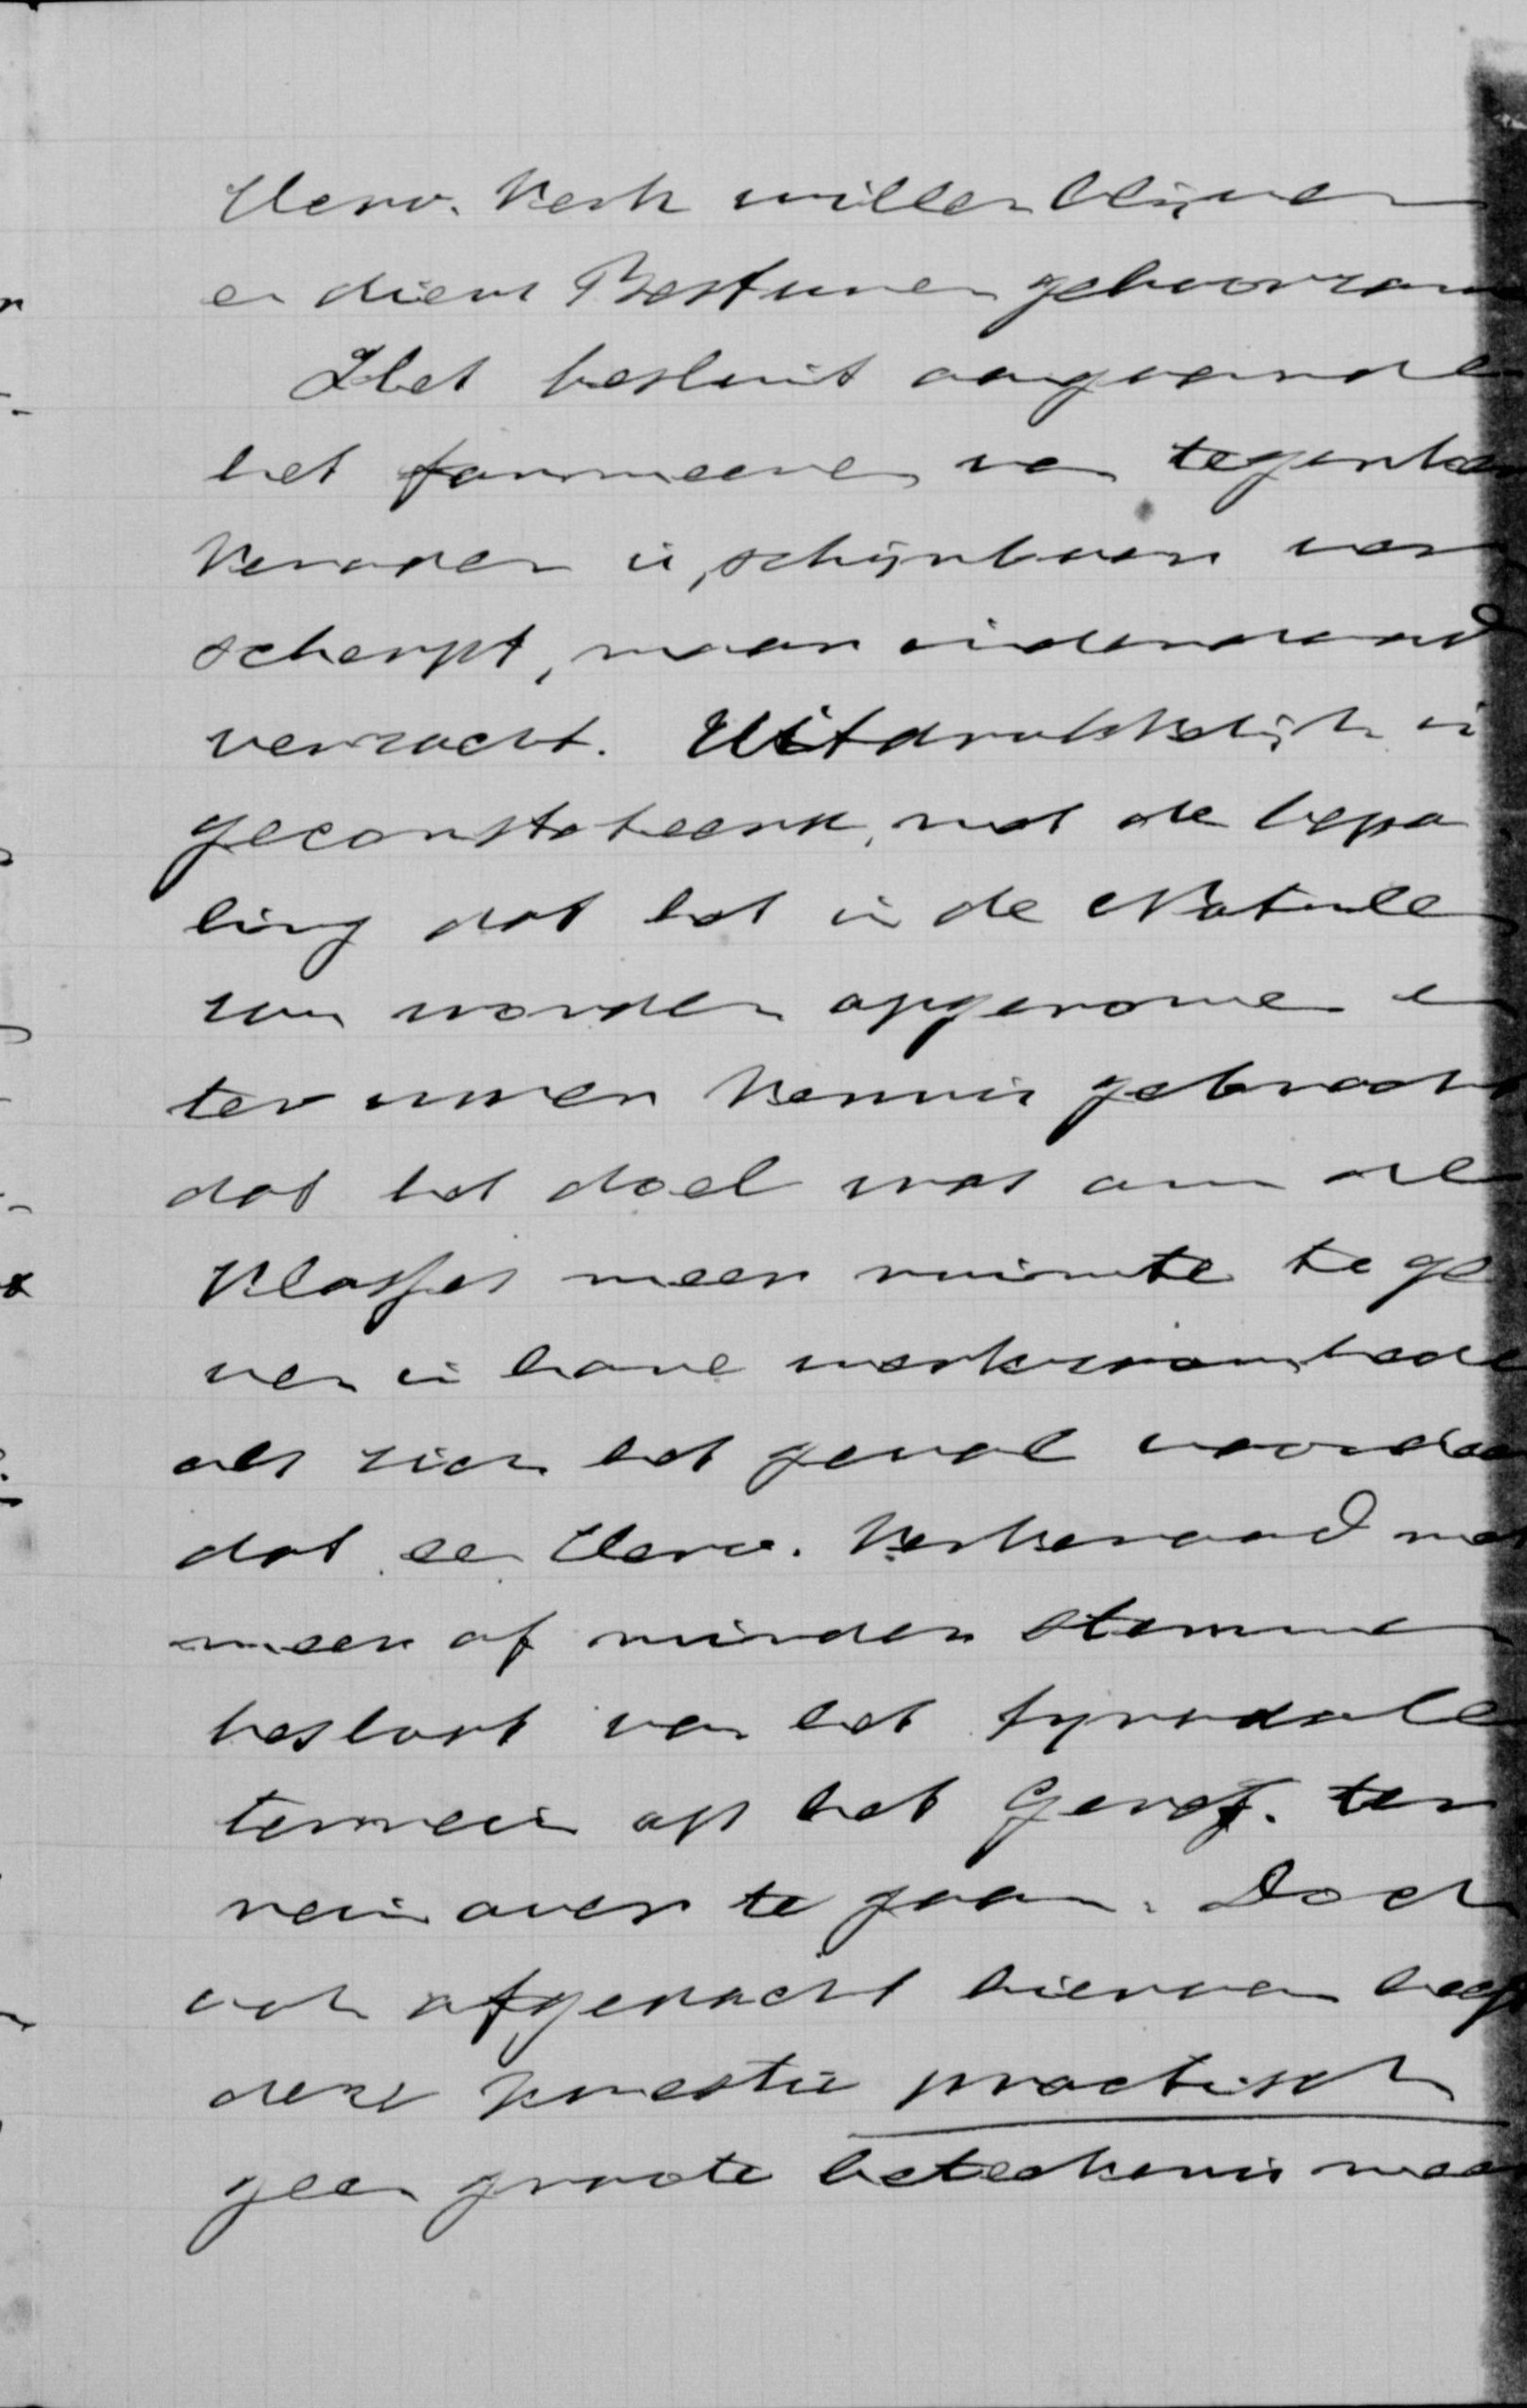 Herv. Kerk willen blijven
en diens Besturen gehoorzam
Het besluit aangaande
het formeeren van tegenker
keraden is, schijnbaar ver
scherpt, maar inderdaad
verzacht. Uitdrukkelijk is
geconstateerd, met de bepa
ling dat het in de Notulen
zou worden opgenomen en
ter uwer kennis gebracht
dat het doel was om de
Klasses meer ruimte te ge
ven in hare werkzaamhede
als zich het geval voordee
dat een Herv. Kerkeraad met
meer of minder stemmen
besloot van het synodale
terrein op het Geref. ter
rein over te gaan. Doch
ook afgedacht hiervan heeft
deze kwestie practisch
geen groote beteekenis maar